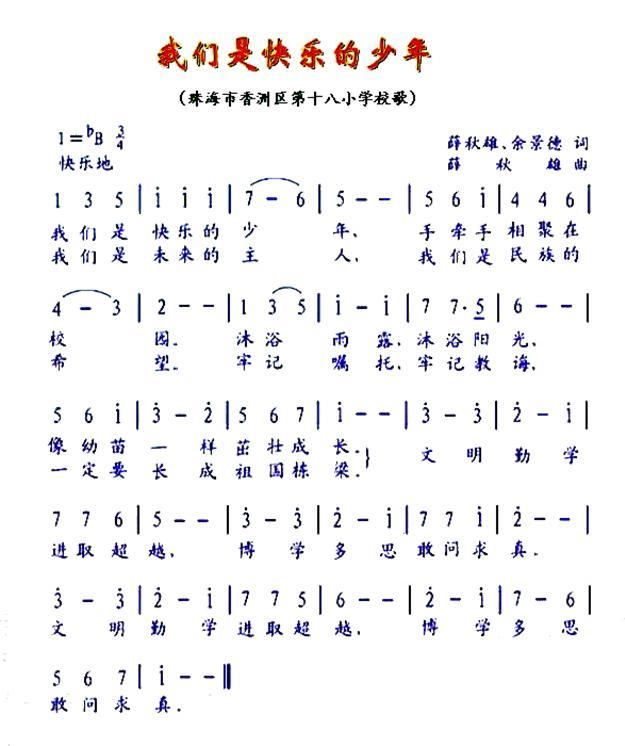 我们是快乐的少年
(珠海市香洲区第十八小学校歌)
1=ᵇB 3/4 薛秋雄、余景德 词
快乐地 薛秋雄 曲
1 3 5 | i̇ i̇ i̇ | 7 - 6 | 5 - - | 5 6 i̇ | 4 4 6 |
我们是 快乐的 少 年、 手牵手 相聚在
我们是 未来的 主 人、 我们是 民族的
4 - 3 | 2 - - | 1 3 5 | i̇ - i̇ | 7 7· 5 | 6 - - |
校 园。 沐浴 雨露,沐浴阳光,
希 望。 牢记 嘱托,牢记教诲,
5 6 i̇ | 3̇ - 2̇ | 5 6 7 | i̇ - - | 3̇ - 3̇ | 2̇ - i̇ |
像幼苗 一 样 茁壮成 长。 文 明 勤 学
一定要 长 成 祖国栋 梁。
7 7 6 | 5 - - | 3̇ - 3̇ | 2̇ - i̇ | 7 7 i̇ | 2̇ - - |
进取超 越, 博 学 多 思 敢问求 真.
3̇ - 3̇ | 2̇ - i̇ | 7 7 5 | 6 - - | 2̇ - i̇ | 7 - 6 |
文 明 勤 学 进取超 越, 博 学 多 思
5 6 7 | i̇ - - ‖
敢问求 真.